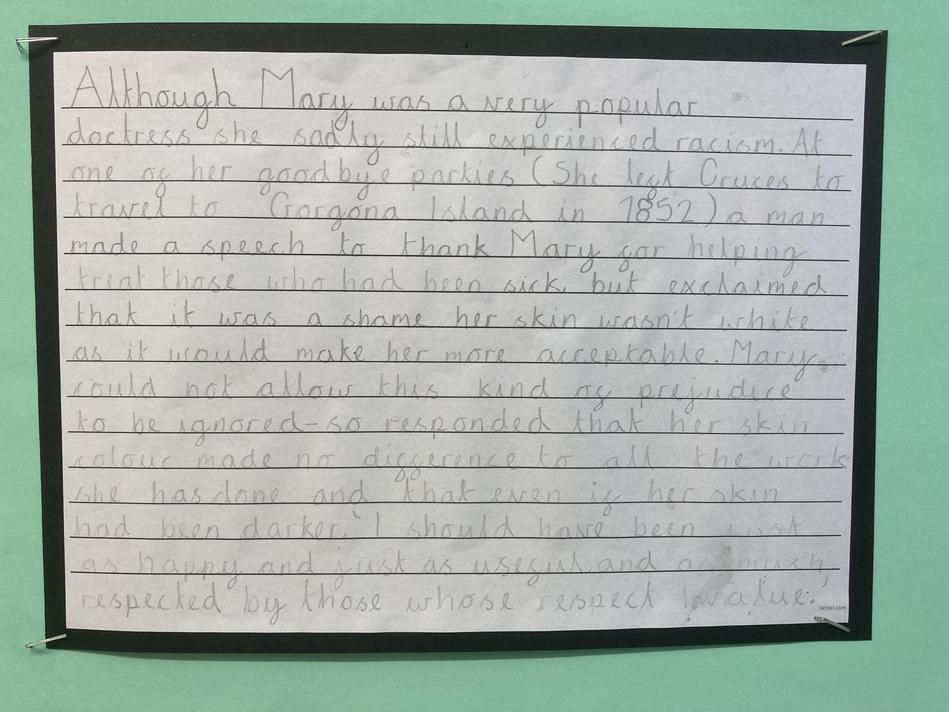 Although Mary was a very popular
doctress she sadly still experienced racism. At
one of her goodbye parties (She left Cruces to
travel to Gorgona Island in 1852) a man
made a speech to thank Mary for helping
treat those who had been sick, but exclaimed
that it was a shame her skin wasn't white
as it would make her more acceptable. Mary
could not allow this kind of prejudice
to be ignored-so responded that her skin
colour made no difference to all the work
she has done and that even if her skin
had been darker, I should have been just
as happy and just as useful, and as much
respected by those whose respect I value.
twinkl.com